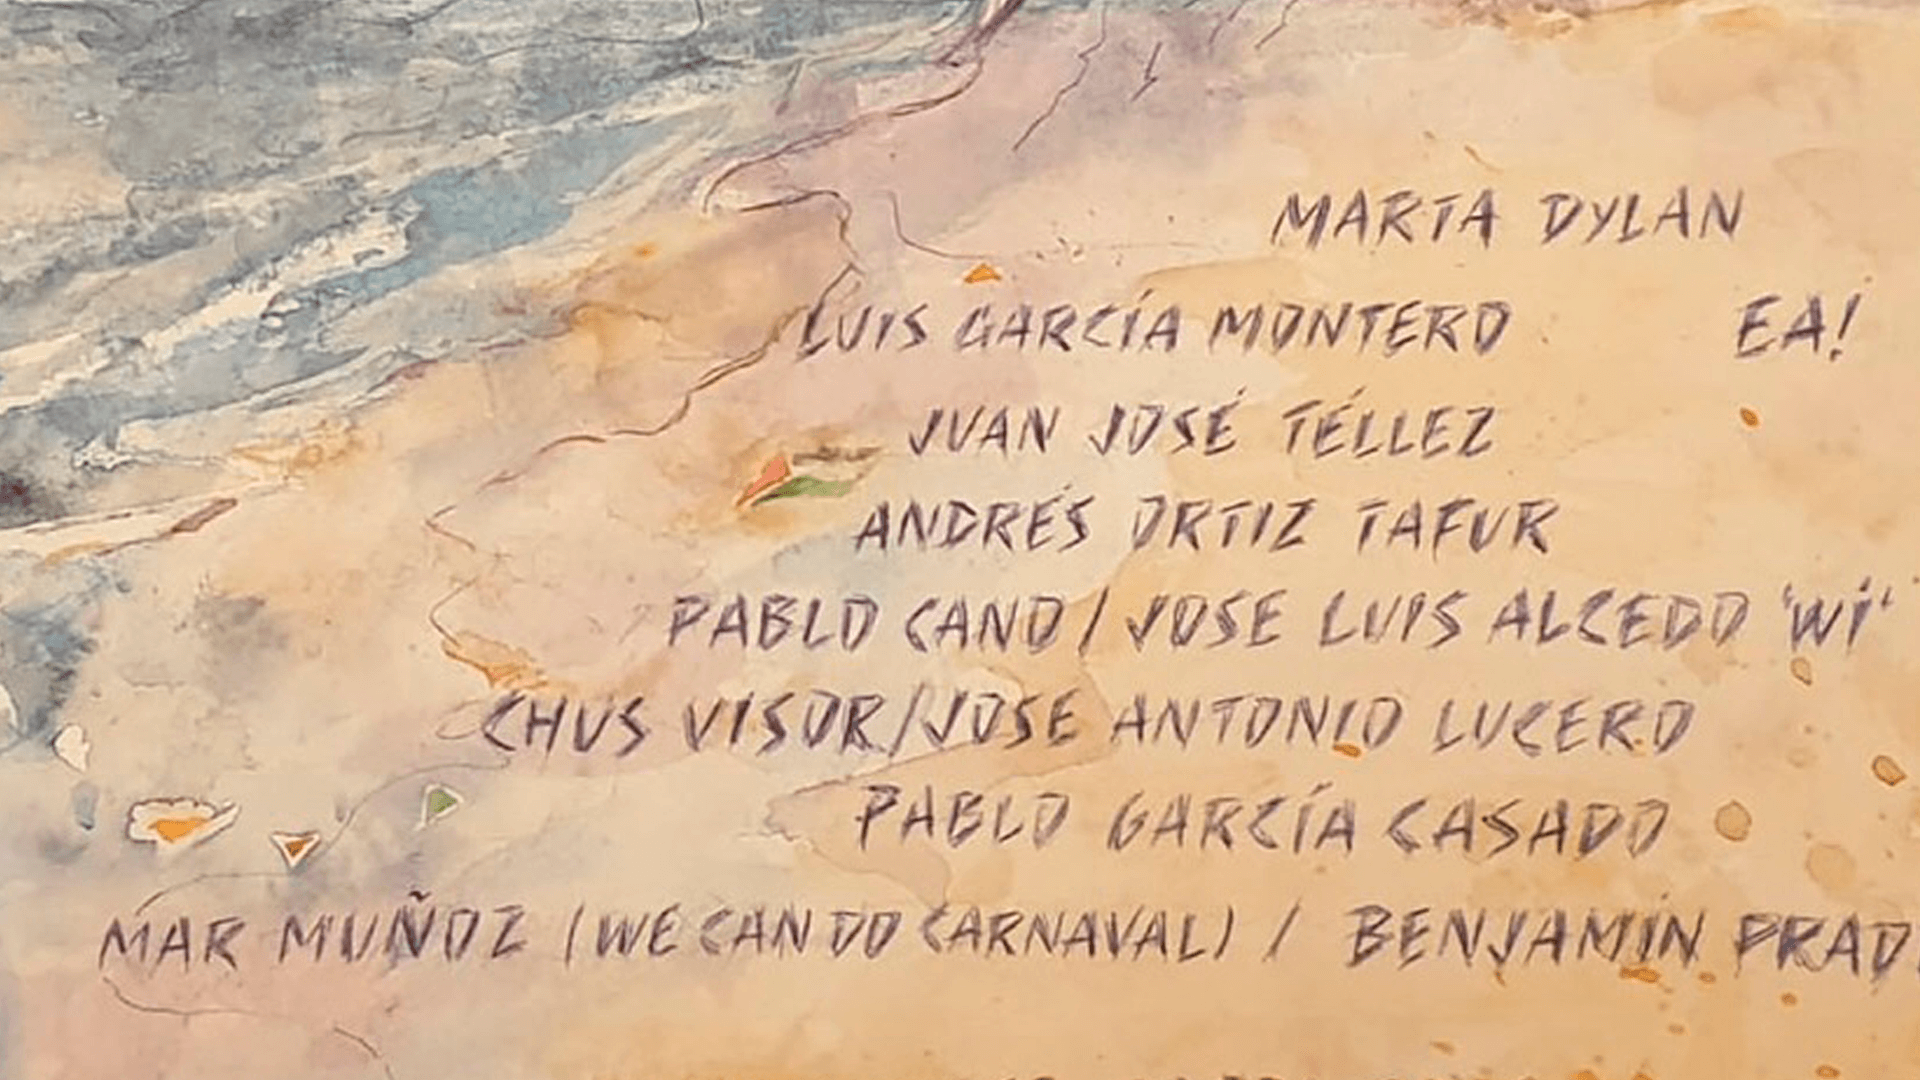 MARTA DYLAN
LUIS GARCÍA MONTERO EA!
JUAN JOSÉ TÉLLEZ
ANDRÉS ORTIZ TAFUR
PABLO CANO / JOSE LUIS ALCEDO 'WI'
CHUS VISOR / JOSE ANTONIO LUCERO
PABLO GARCÍA CASADO
MAR MUÑOZ (WE CAN DO CARNAVAL) / BENJAMÍN PRAD